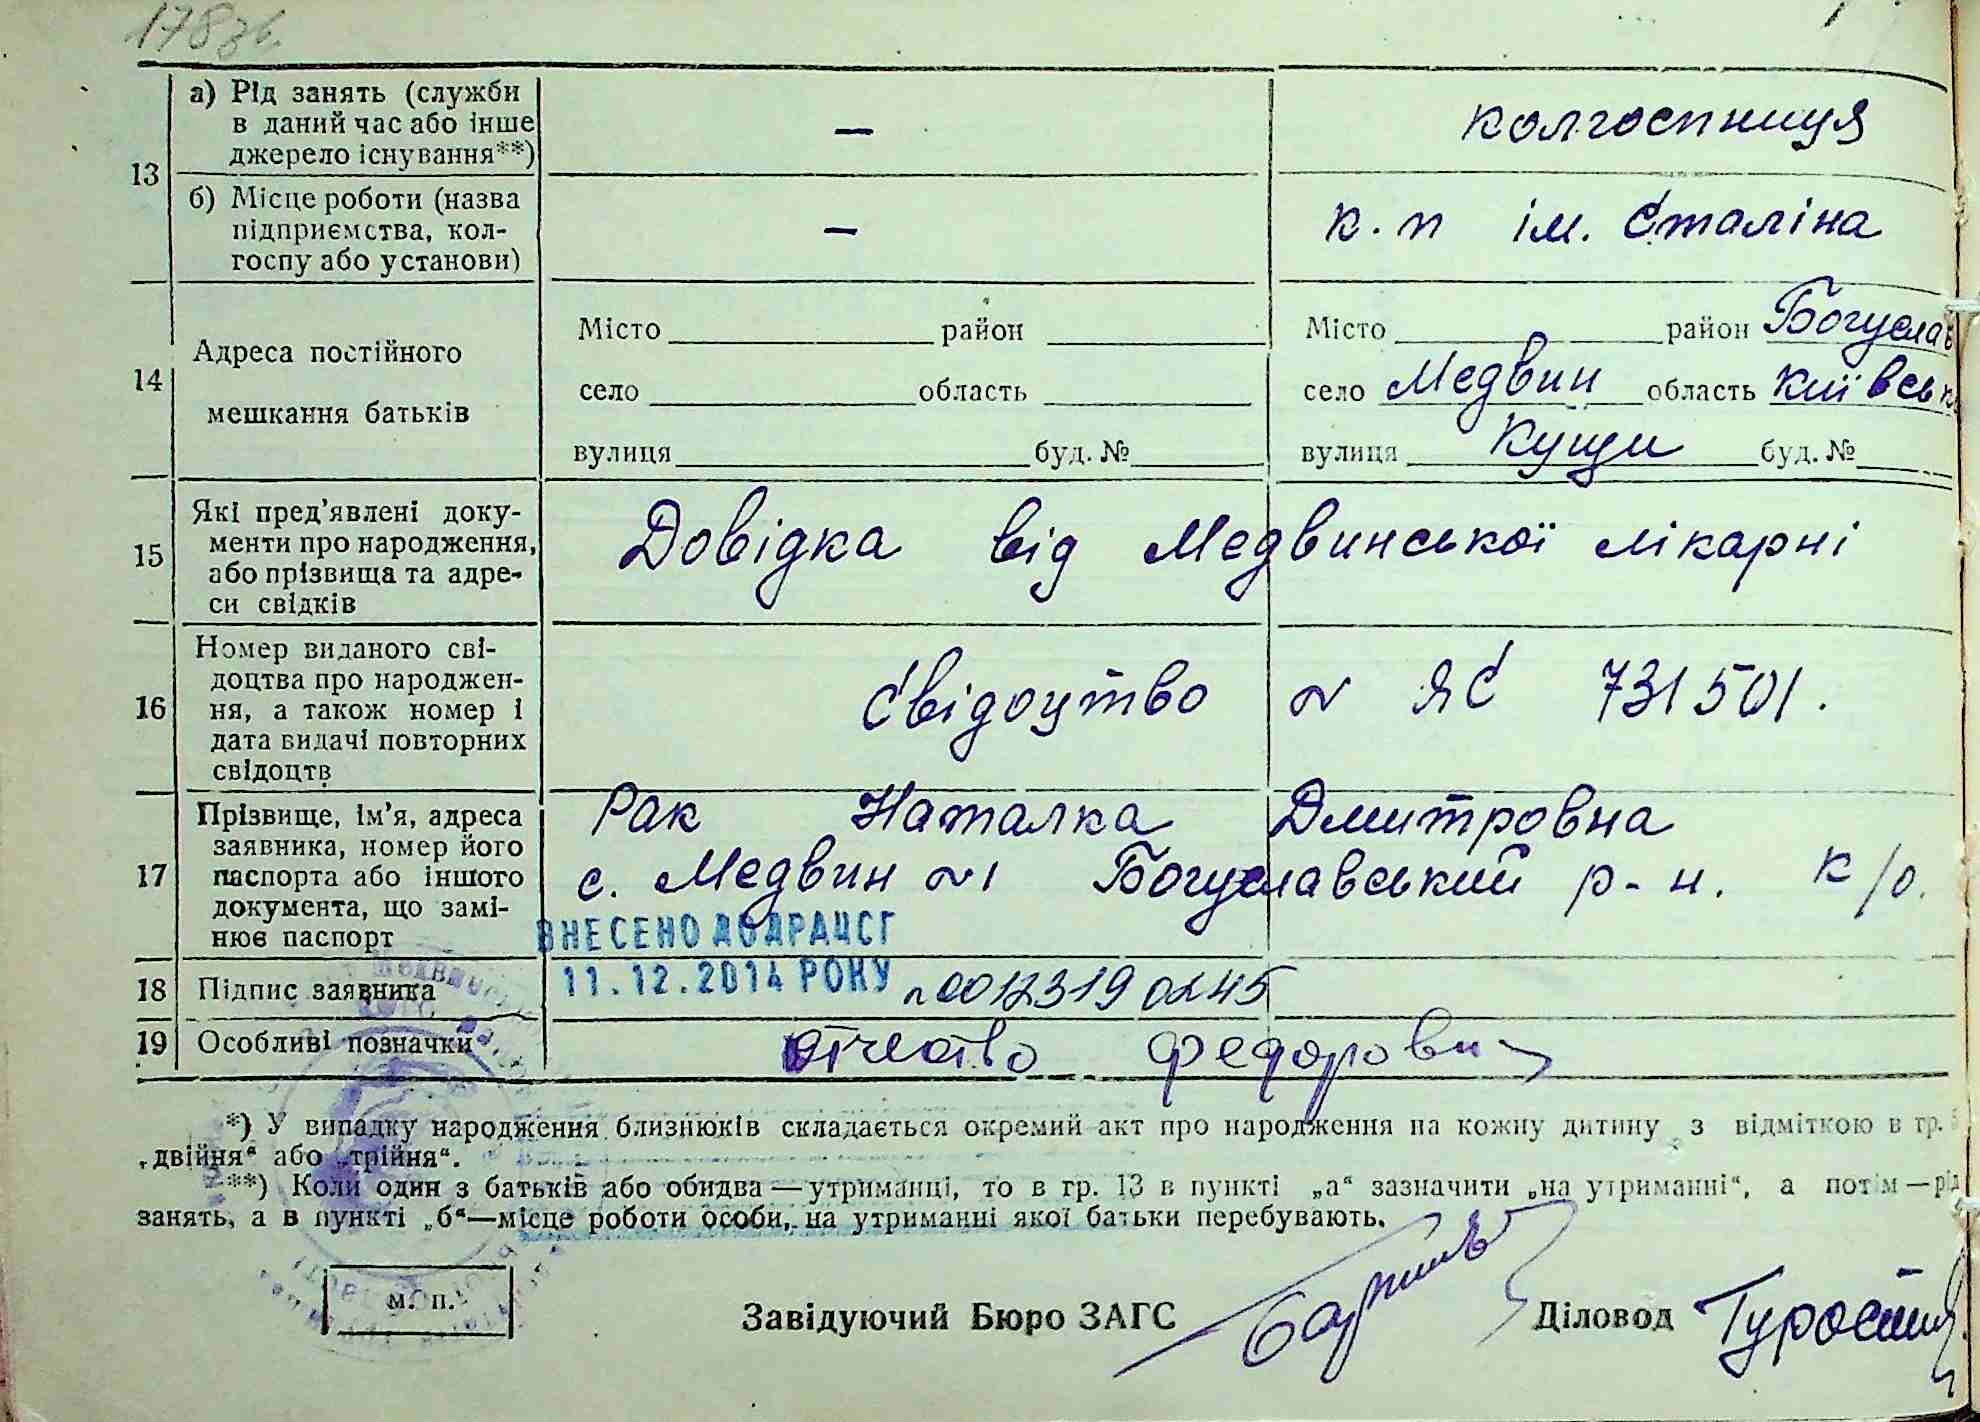 178 зв.
13 а) Рід занять (служби в даний час або інше джерело існування**) — колгоспниця
б) Місце роботи (назва підприємства, колгоспу або установи) — к.п ім. Сталіна
14 Адреса постійного мешкання батьків
Місто район Місто район Богуслав
село область село Медвин область Київськ
вулиця буд. № вулиця Кущи буд. №
15 Які пред'явлені доку-
менти про народження,
або прізвища та адре-
си свідків
Довідка від Медвинської лікарні
16 Номер виданого сві-
доцтва про народжен-
ня, а також номер і
дата видачі повторних
свідоцтв
Свідоцтво № ЯС 731501.
17 Прізвище, ім'я, адреса
заявника, номер його
паспорта або іншого
документа, що замі-
нює паспорт
Рак Наталка Дмитровна
с. Медвин №1 Богуславський р-н. К/о.
ВНЕСЕНО ДО ДРАЦСГ
11.12.2014 РОКУ №00123190245
18 Підпис заявника
19 Особливі позначки отчество Федорович
*) У випадку народження близнюків складається окремий акт про народження на кожну дитину з відміткою в гр. 5
„двійня“ або „трійня“.
**) Коли один з батьків або обидва — утриманці, то в гр. 13 в пункті „а“ зазначити „на утриманні“, а потім — рід
занять, а в пункті „б“—місце роботи особи, на утриманні якої батьки перебувають.
м. п.
Завідуючий Бюро ЗАГС Діловод